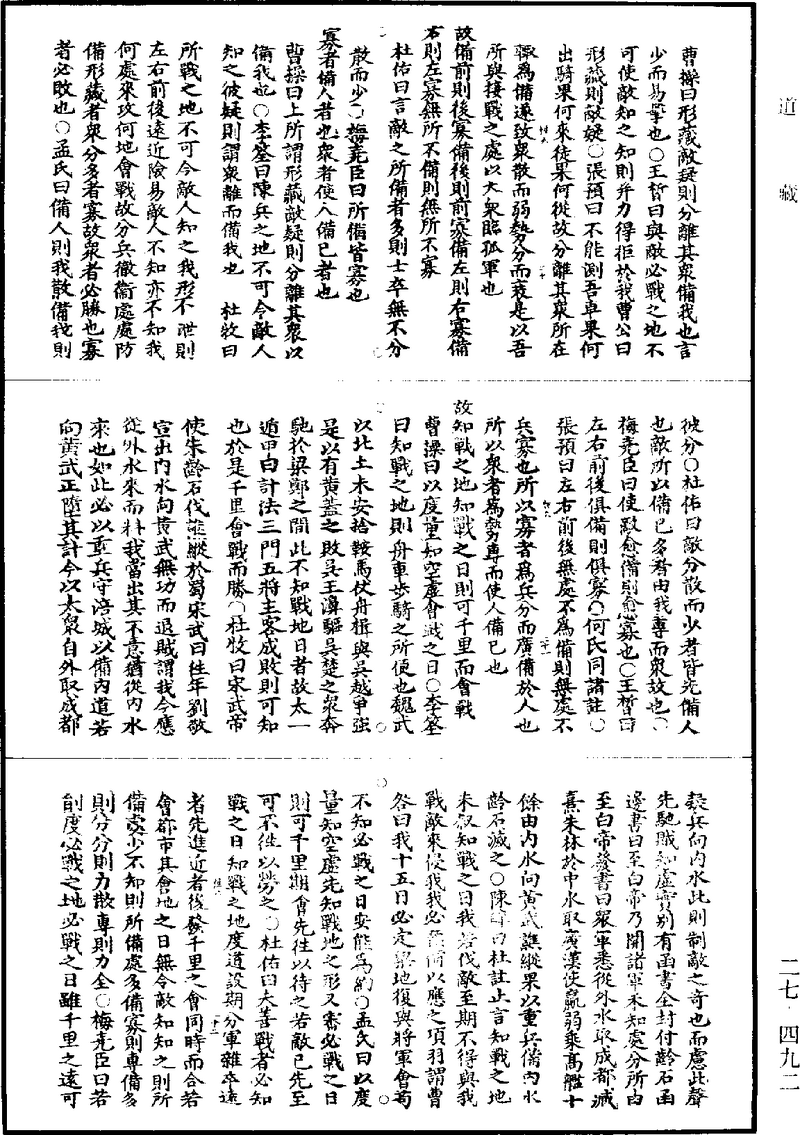 道藏
曹操曰形藏敵疑則分離其衆備我也言
少而易擊也〇王晳曰與敵必戰之地不
可使敵知之知則并力得拒於我曹公曰
形藏則敵疑〇張預曰不能測吾車果何
出騎果何來徒果何從故分離其衆所在
輒爲備遂致衆散而弱勢分而衰是以吾
所與接戰之處以大衆臨孤軍也
故備前則後寡備後則前寡備左則右寡備
右則左寡無所不備則無所不寡
杜佑曰言敵之所備者多則士卒無不分
散而少〇梅堯臣曰所備皆寡也
寡者備人者也衆者使人備己者也
曹操曰上所謂形藏敵疑則分離其衆以
備我也〇李筌曰陳兵之地不可令敵人
知之彼疑則謂衆離而備我也 杜牧曰
所戰之地不可令敵人知之我形不泄則
左右前後遠近險易敵人不知亦不知我
何處來攻何地會戰故分兵徹衞處處防
備形藏者衆分多者寡故衆者必勝也寡
者必敗也〇孟氏曰備人則我散備我則
彼分〇杜佑曰敵分散而少者皆先備人
也敵所以備己多者由我專而衆故也〇
梅堯臣曰使敵愈備則愈寡也〇王晳曰
左右前後俱備則俱寡〇何氏同諸註〇
張預曰左右前後無處不爲備則無處不
兵寡也所以寡者爲兵分而廣備於人也
所以衆者爲勢專而使人備己也
故知戰之地知戰之日則可千里而會戰
曹操曰以度量知空虛會戰之日〇李筌
曰知戰之地則舟車步騎之所便也魏武
以北土未安捨鞍馬伏舟楫與吳越爭強
是以有黃蓋之敗吳王濞驅吳楚之衆奔
馳於梁鄭之間此不知戰地日者故太一
遁甲曰計法三門五將主客成敗則可知
也於是千里會戰而勝〇杜牧曰宋武帝
使朱齡石伐譙縱於蜀宋武曰往年劉敬
宣出內水向黃武無功而退賊謂我今應
從外水來而料我當出其不意猶從內水
來也如此必以重兵守涪城以備內道若
向黃武正墮其計今以大衆自外取成都
疑兵向內水此則制敵之奇也而慮此聲
先馳賊知虛實別有函書全封付齡石函
邊書曰至白帝乃開諸軍未知處分所由
至白帝發書曰衆軍悉從外水取成都臧
熹朱林於中水取廣漢使羸弱乘高艦十
餘由內水向黃武譙縱果以重兵備內水
齡石滅之〇陳皥曰杜註止言知戰之地
未叙知戰之日我若伐敵至期不得與我
戰敵來侵我我必預備以應之項羽謂曹
咎曰我十五日必定梁地復與將軍會苟
不知必戰之日安能爲約〇孟氏曰以度
量知空虛先知戰地之形又審必戰之日
則可千里期會先往以待之若敵已先至
可不往以勞之〇杜佑曰夫善戰者必知
戰之日知戰之地度道設期分軍雜卒遠
者先進近者後發千里之會同時而合若
會都市其會地之日無令敵知知之則所
備處少不知則所備處多備寡則專備多
則分分則力散專則力全〇梅堯臣曰若
能度必戰之地必戰之日雖千里之遠可
二七·四九二